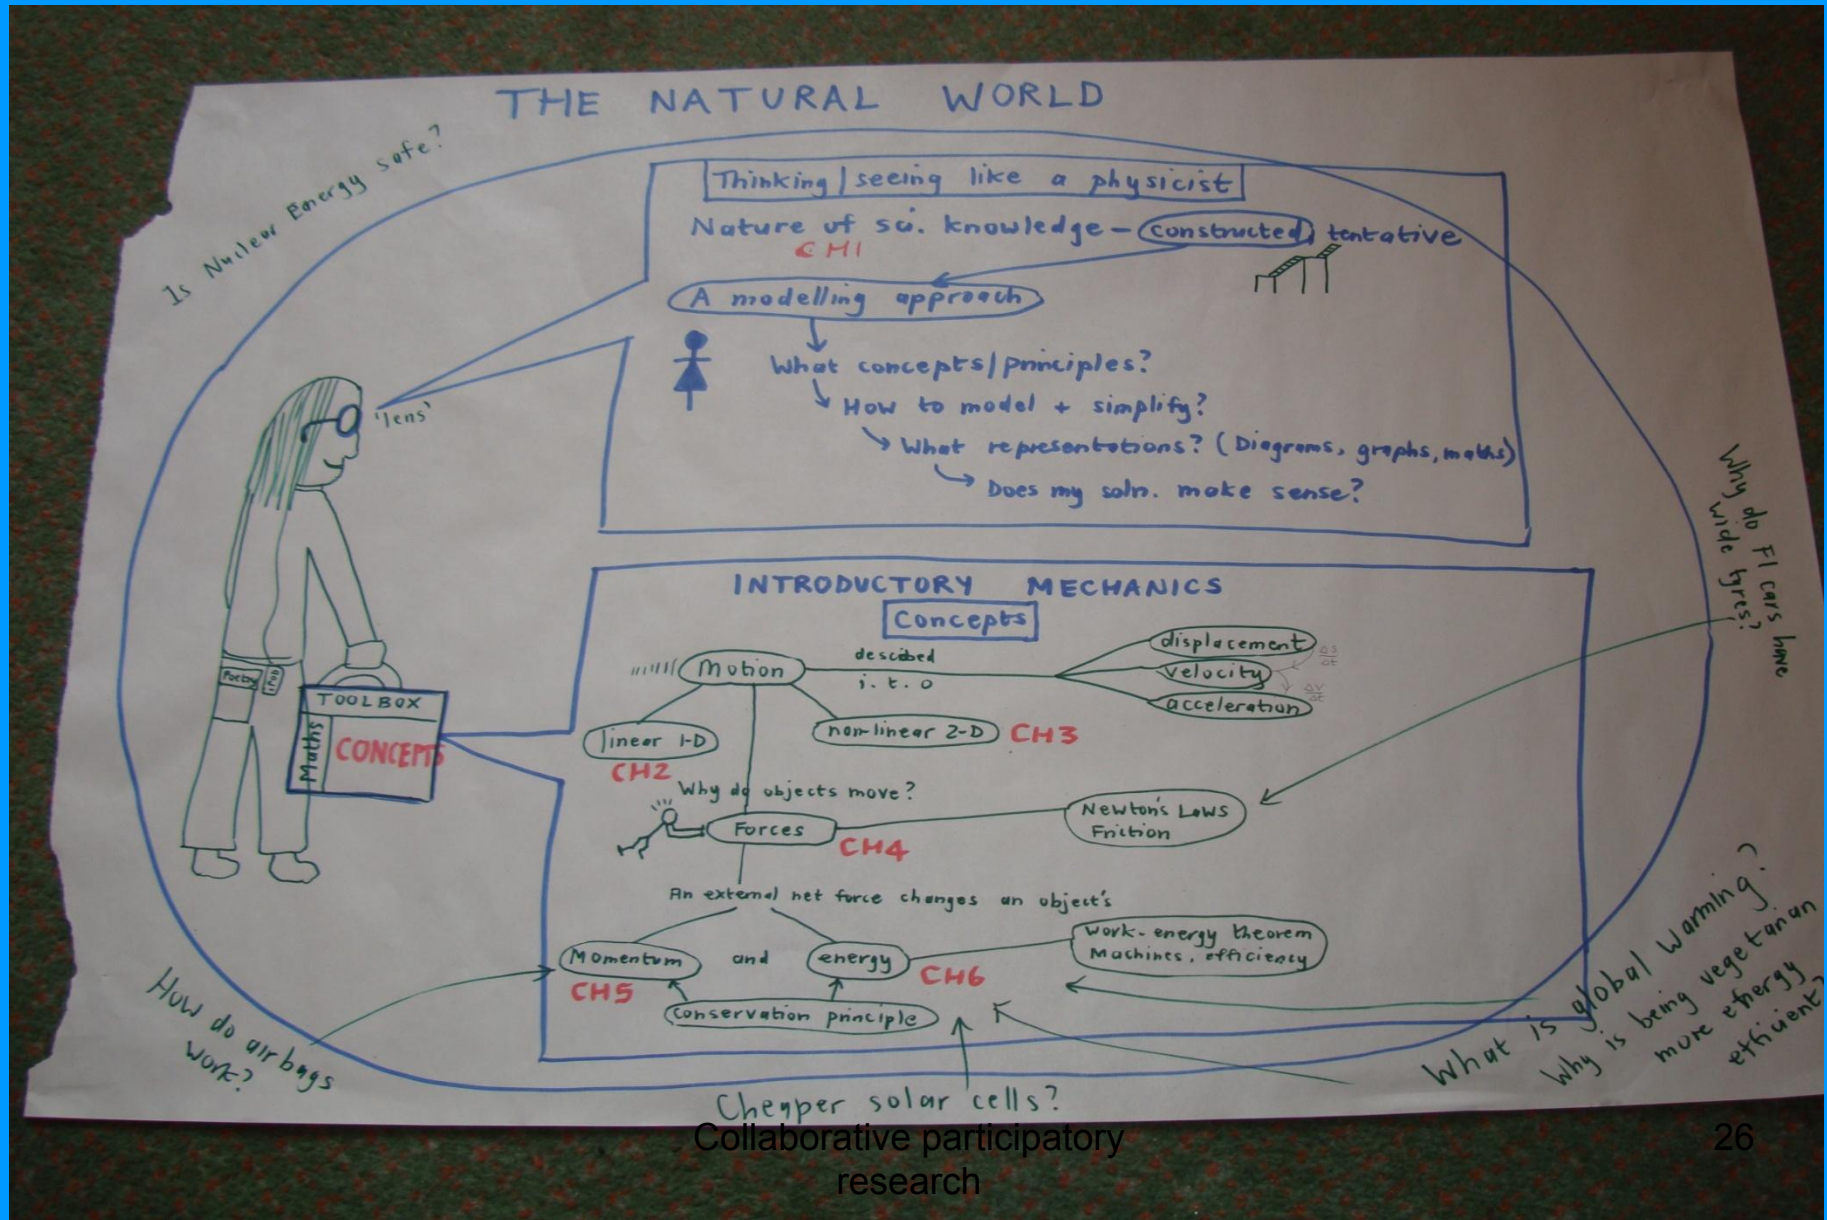 THE NATURAL WORLD
Is Nuclear Energy safe?
Thinking/seeing like a physicist
Nature of sci. knowledge - constructed, tentative
CH1
A modelling approach
What concepts/principles?
How to model + simplify?
What representations? (Diagrams, graphs, maths)
Does my soln. make sense?
'lens'
Why do F1 cars have
wide tyres?
INTRODUCTORY MECHANICS
Concepts
Motion
described
i.t.o
displacement
velocity
acceleration
Δs
Δt
Δv
Δt
linear 1-D
CH2
non-linear 2-D
CH3
Poetry
iPod
TOOLBOX
Maths
CONCEPTS
Why do objects move?
Forces
CH4
Newton's Laws
Friction
An external net force changes an object's
Momentum
and
energy
CH5
CH6
Work-energy theorem
Machines, efficiency
Conservation principle
How do air bags
work?
Cheaper solar cells?
What is global warming?
Why is being vegetarian
more energy
efficient?
Collaborative participatory
research
26